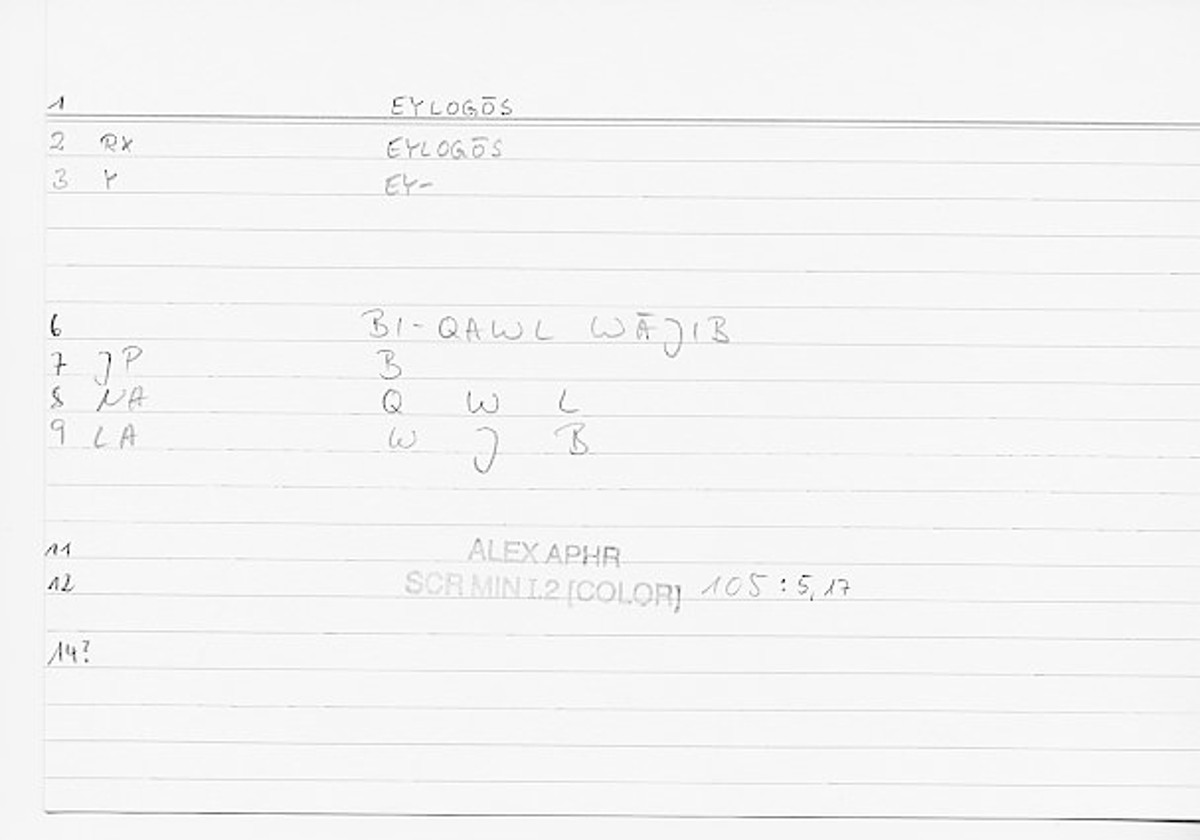 1 EYLOGŌS
2 RX EYLOGŌS
3 Y EY-
6 BI-QAWL WĀJIB
7 JP B
8 NA Q W L
9 LA W J B
11 ALEX APHR
12 SCR MIN I.2 [COLOR] 105:5,17
14?